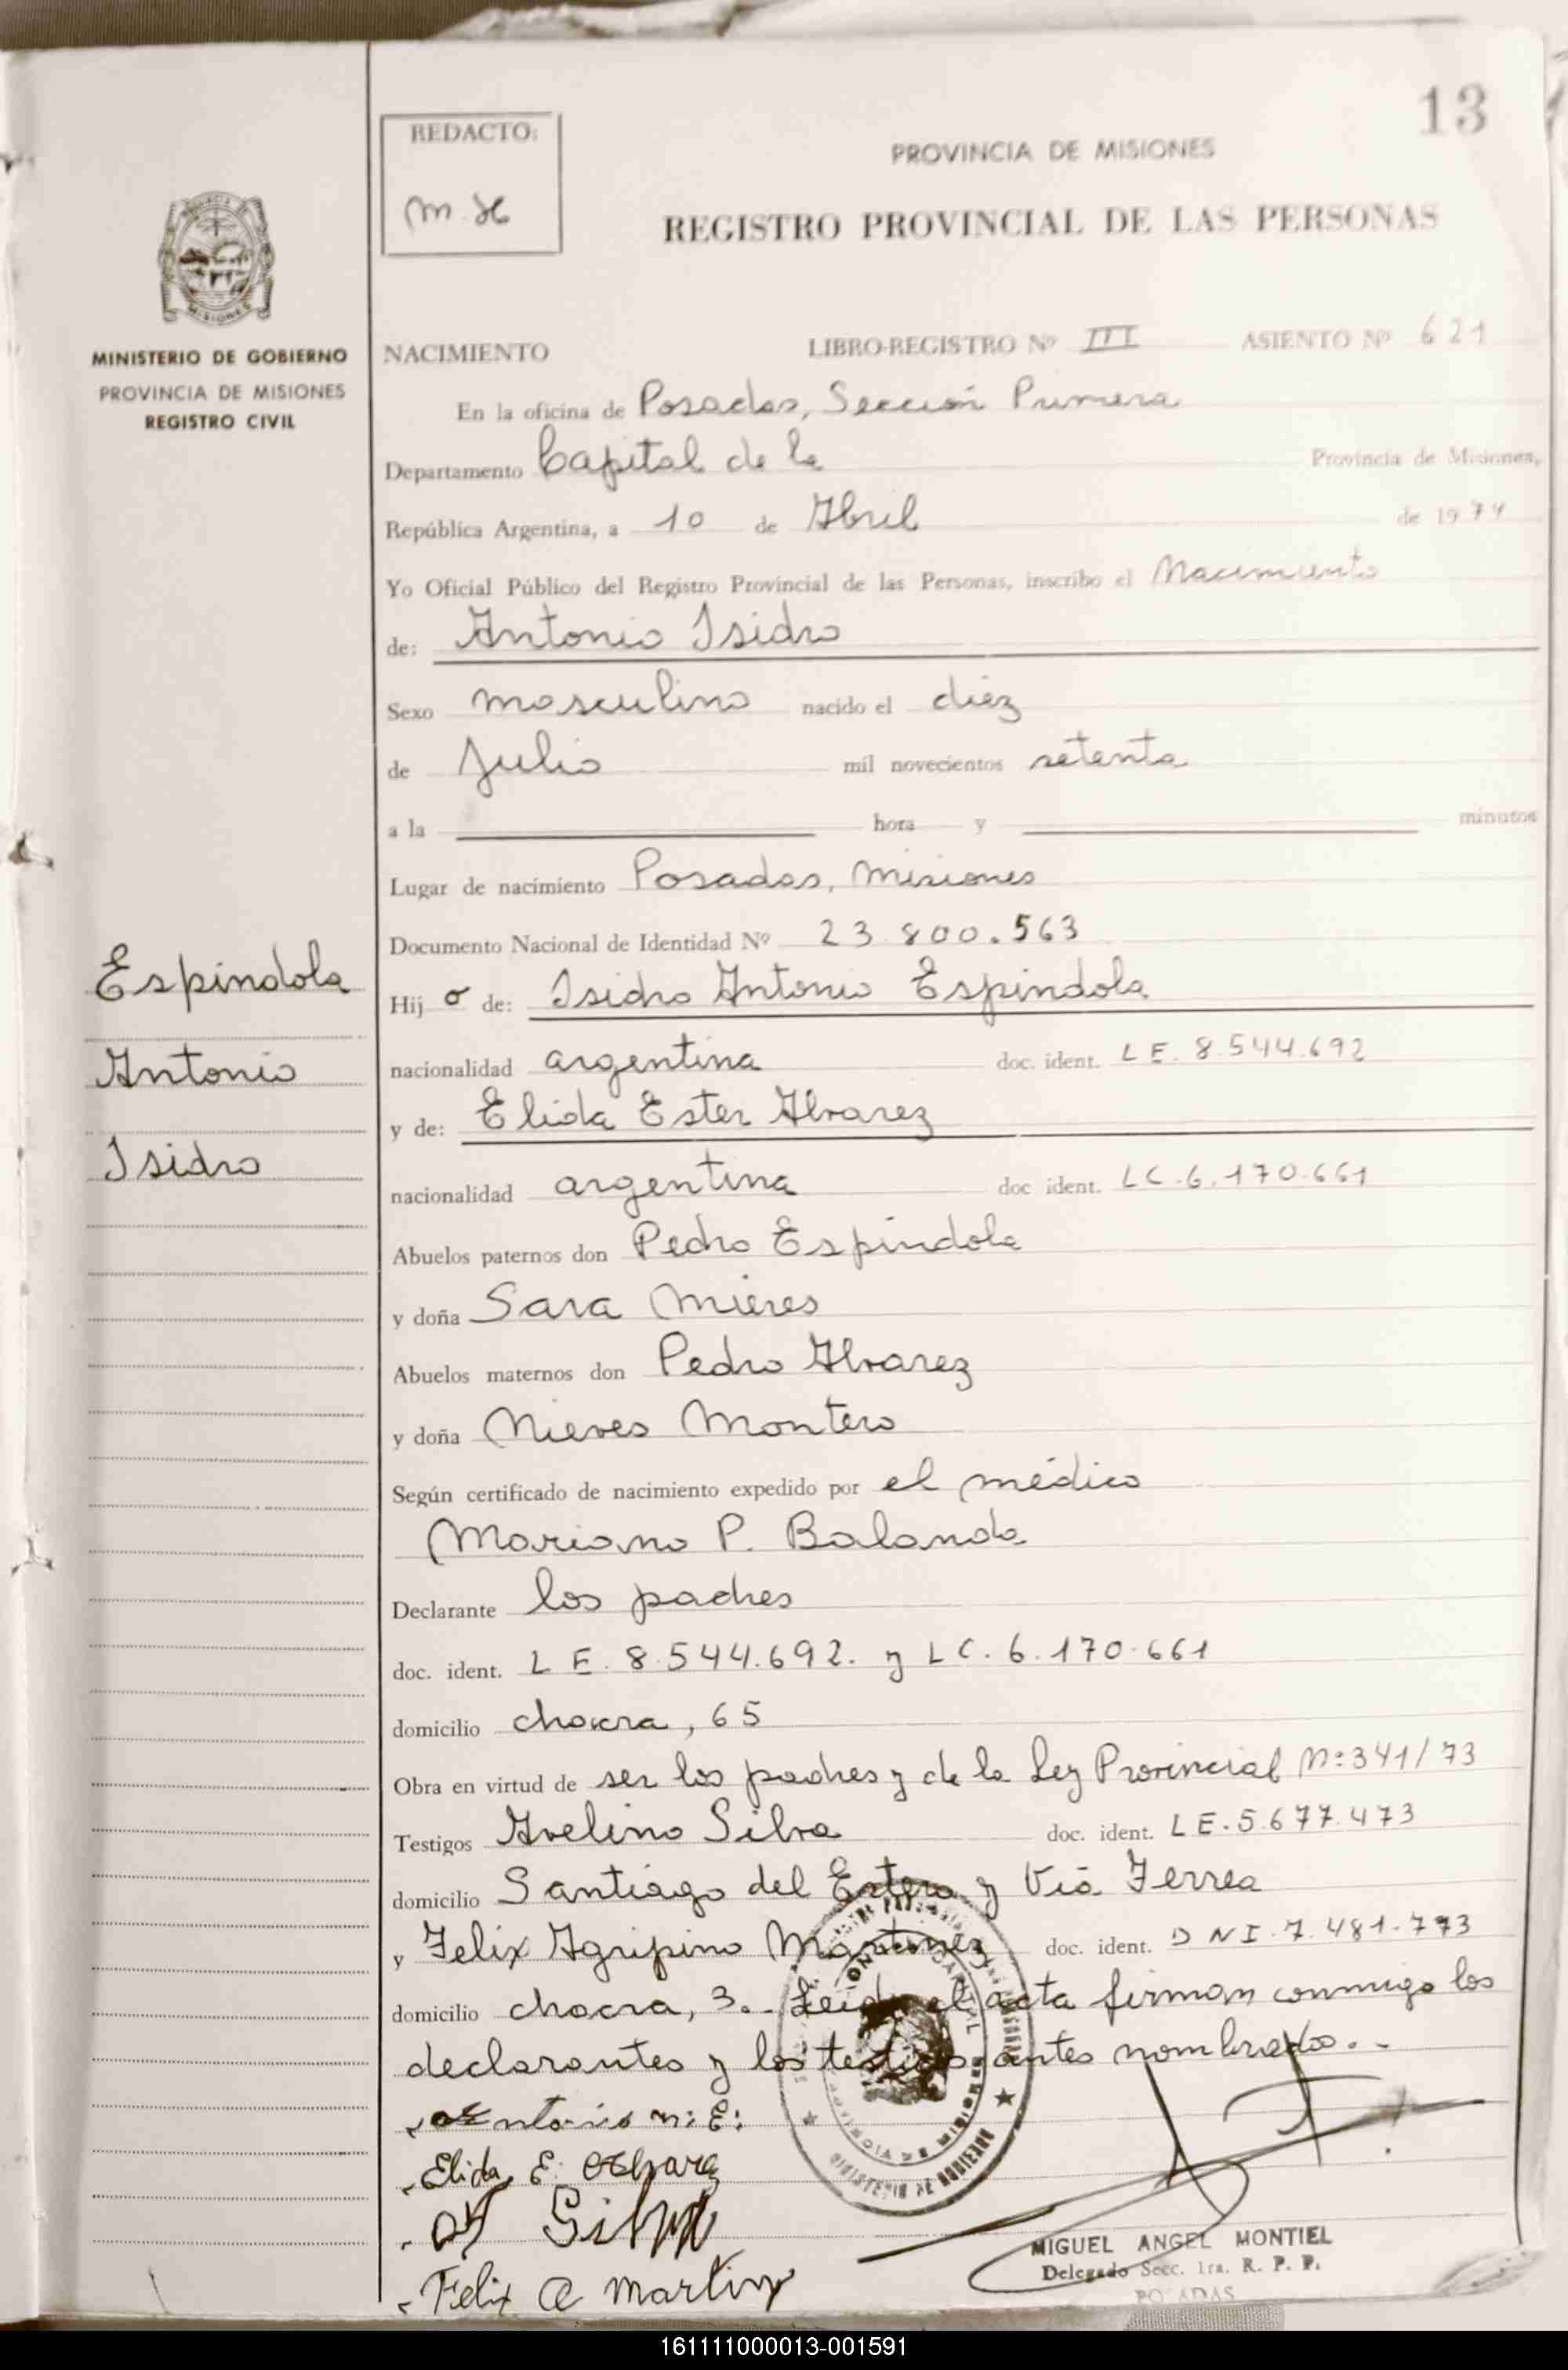 13
REDACTO:
PROVINCIA DE MISIONES
REGISTRO PROVINCIAL DE LAS PERSONAS
MISIONES
MINISTERIO DE GOBIERNO
PROVINCIA DE MISIONES
REGISTRO CIVIL
NACIMIENTO LIBRO-REGISTRO Nº III ASIENTO Nº 621
En la oficina de Posadas, Sección Primera
Departamento Capital de la Provincia de Misiones,
República Argentina, a 10 de Abril de 1974
Yo Oficial Público del Registro Provincial de las Personas, inscribo el Nacimiento
de: Antonio Isidro
Sexo masculino nacido el diez
de Julio mil novecientos setenta
a la hora y minutos
Lugar de nacimiento Posadas, Misiones
Documento Nacional de Identidad Nº 23.800.563
Espindola
Hij o de: Isidro Antonio Espindola
Antonio
nacionalidad argentina doc. ident. LE. 8.544.692
y de: Elida Ester Alvarez
Isidro
nacionalidad argentina doc ident. LC.6.170.661
Abuelos paternos don Pedro Espindola
y doña Sara Mieres
Abuelos maternos don Pedro Alvarez
y doña Nieves Montero
Según certificado de nacimiento expedido por el médico
Mariano P. Balanda
Declarante los padres
doc. ident. LE. 8.544.692. y LC. 6.170.661
domicilio chacra, 65
Obra en virtud de ser los padres y de la Ley Provincial Nº 341/73
Testigos Avelino Silva doc. ident. LE.5.677.473
domicilio Santiago del Estero y Vía Ferrea
y Felix Agripino Martinez doc. ident. DNI.7.481.773
domicilio chacra, 3.- Leida el acta firman conmigo los
declarantes y los testigos antes nombrados.-
Elida E.
Silva
Felix A Martin
MIGUEL ANGEL MONTIEL
Delegado Secc. 1ra. R. P. P.
POSADAS
161111000013-001591